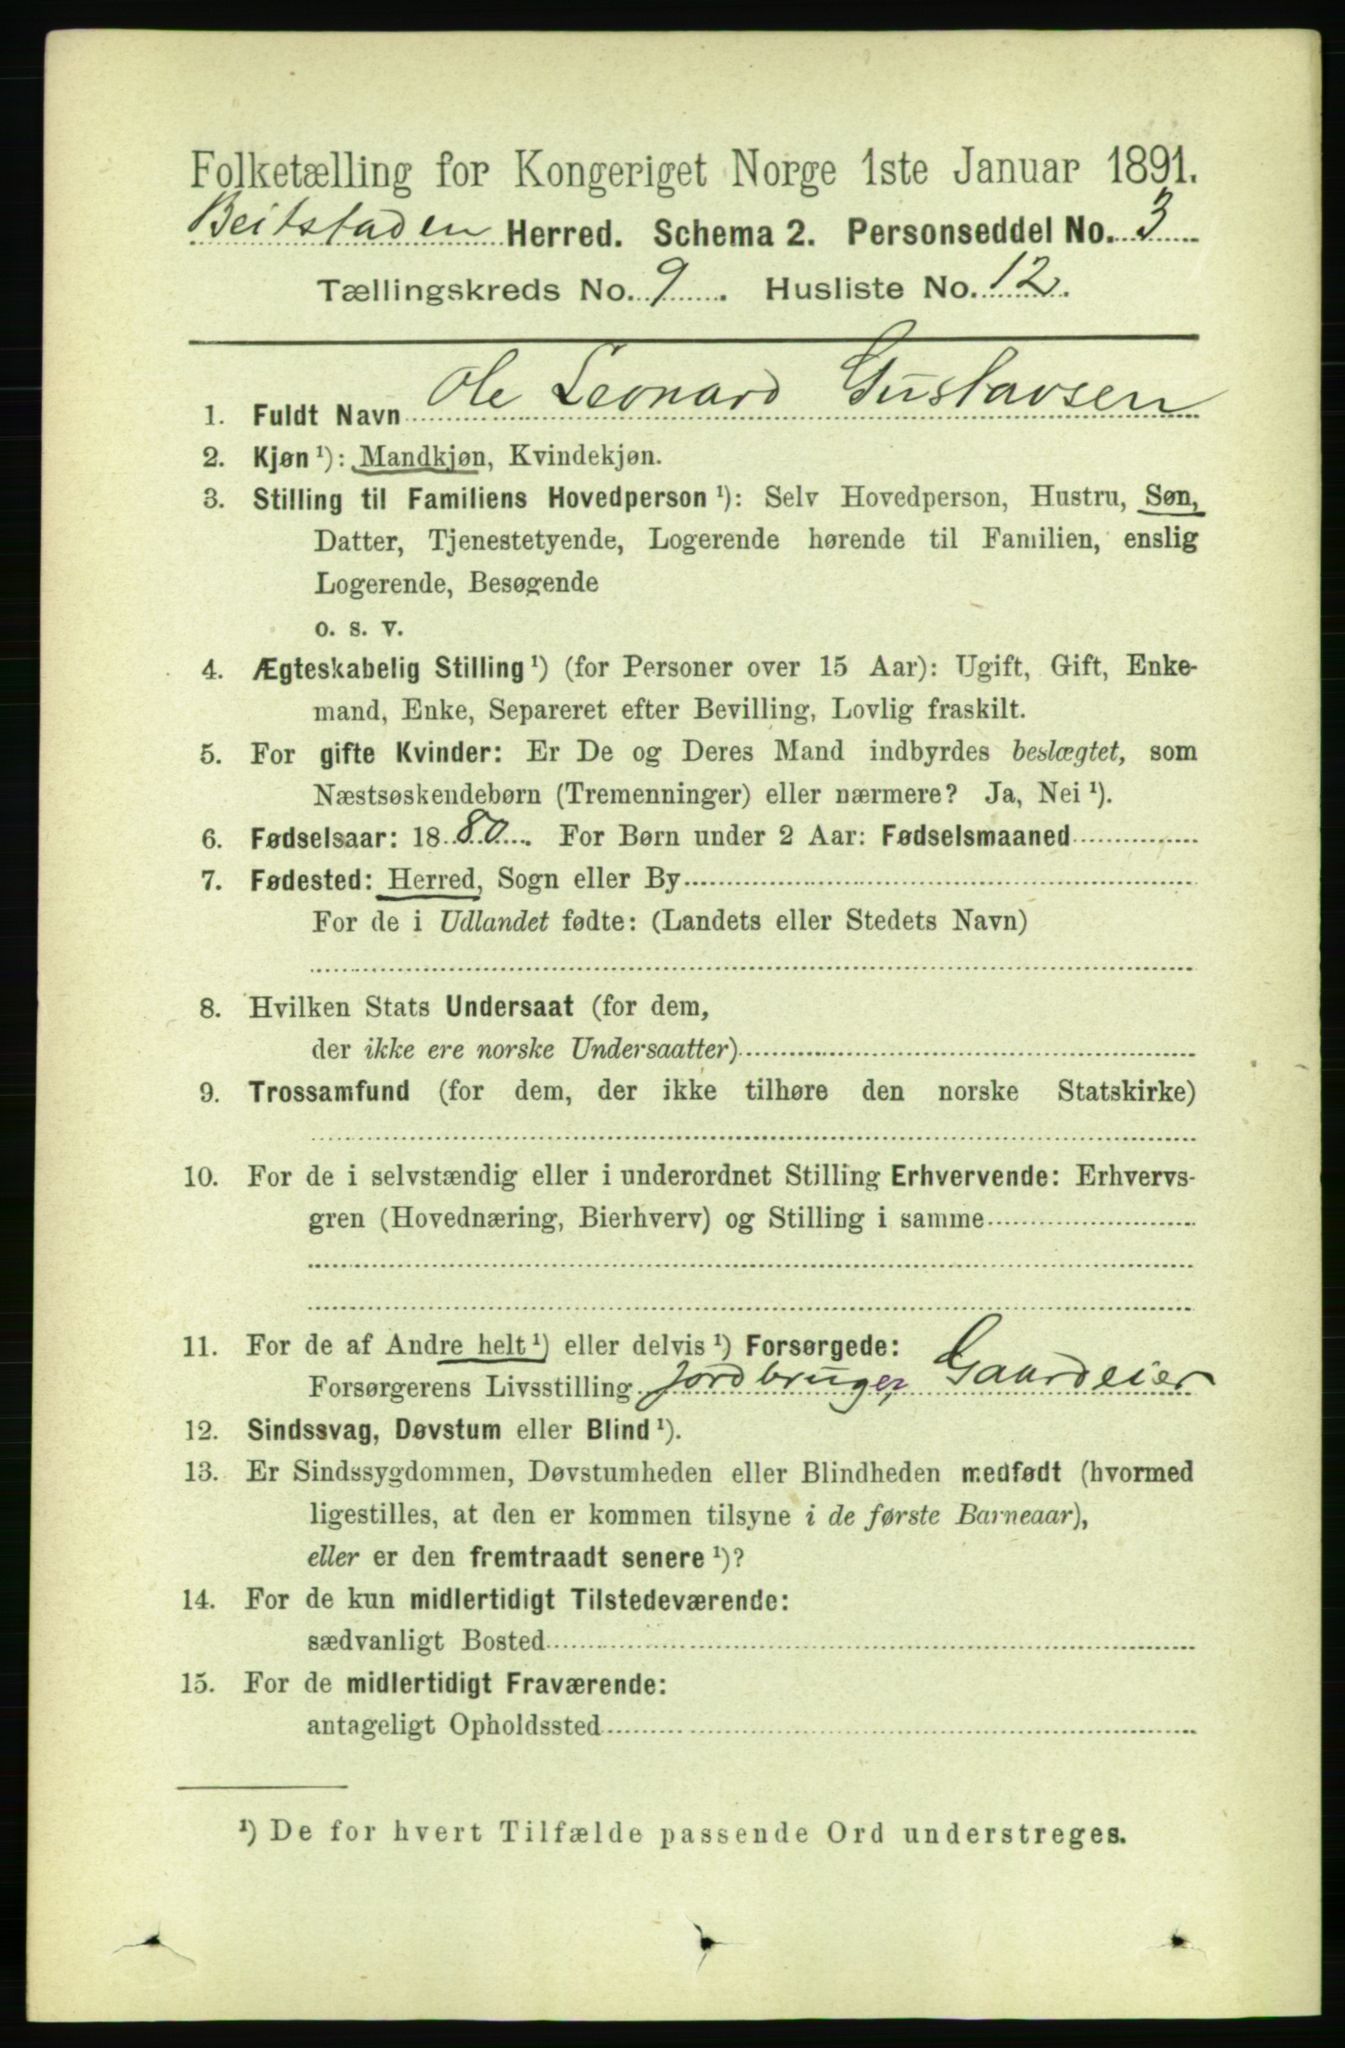 Folketælling for Kongeriget Norge 1ste Januar 1891.
Beitstaden Herred. Schema 2. Personseddel No. 3
Tællingskreds No. 9. Husliste No. 12.
1. Fuldt Navn Ole Leonard Gustavsen
2. Kjøn ¹): Mandkjøn, Kvindekjøn.
3. Stilling til Familiens Hovedperson ¹): Selv Hovedperson, Hustru, Søn,
Datter, Tjenestetyende, Logerende hørende til Familien, enslig
Logerende, Besøgende
o. s. v.
4. Ægteskabelig Stilling ¹) (for Personer over 15 Aar): Ugift, Gift, Enke-
mand, Enke, Separeret efter Bevilling, Lovlig fraskilt.
5. For gifte Kvinder: Er De og Deres Mand indbyrdes beslægtet, som
Næstsøskendebørn (Tremenninger) eller nærmere? Ja, Nei ¹).
6. Fødselsaar: 1880. For Børn under 2 Aar: Fødselsmaaned
7. Fødested: Herred, Sogn eller By
For de i Udlandet fødte: (Landets eller Stedets Navn)
8. Hvilken Stats Undersaat (for dem,
der ikke ere norske Undersaatter)
9. Trossamfund (for dem, der ikke tilhøre den norske Statskirke)
10. For de i selvstændig eller i underordnet Stilling Erhvervende: Erhvervs-
gren (Hovednæring, Bierhverv) og Stilling i samme
11. For de af Andre helt ¹) eller delvis ¹) Forsørgede:
Forsørgerens Livsstilling Jordbruger, Gaardeier
12. Sindssvag, Døvstum eller Blind ¹).
13. Er Sindssygdommen, Døvstumheden eller Blindheden medfødt (hvormed
ligestilles, at den er kommen tilsyne i de første Barneaar),
eller er den fremtraadt senere ¹)?
14. For de kun midlertidigt Tilstedeværende:
sædvanligt Bosted
15. For de midlertidigt Fraværende:
antageligt Opholdssted
¹) De for hvert Tilfælde passende Ord understreges.